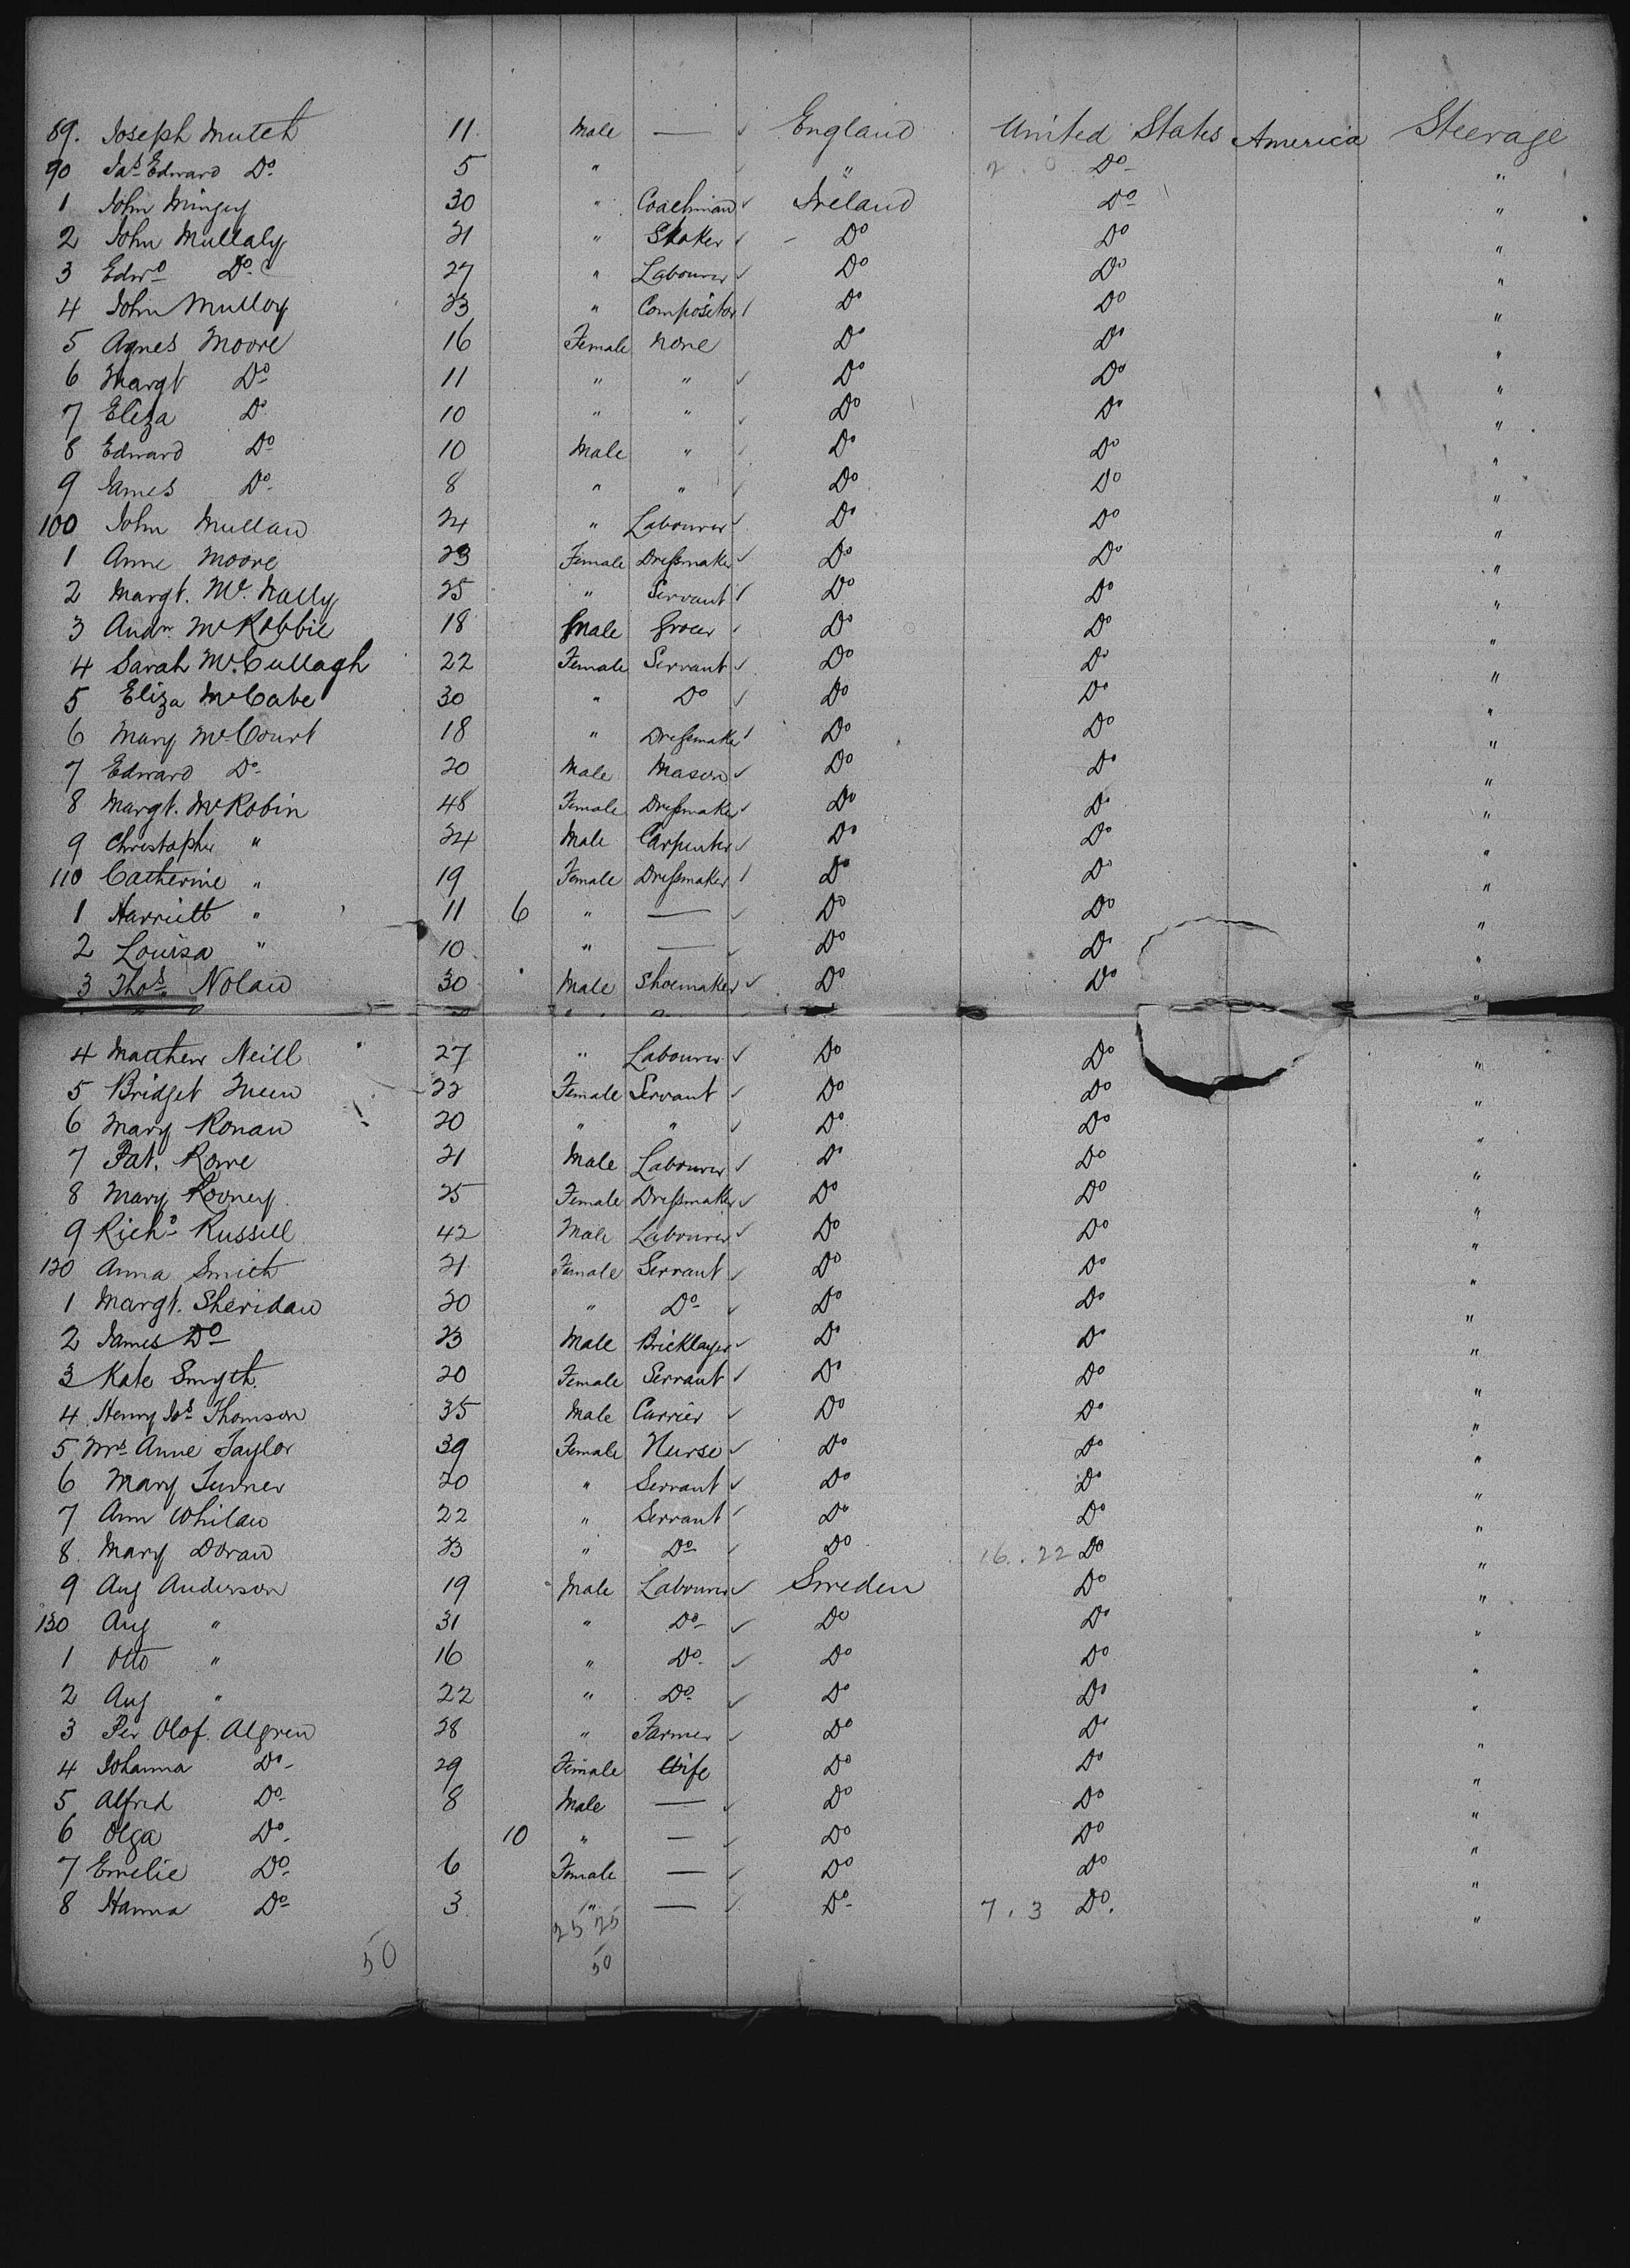 89. Joseph Mutch 11 Male — ✓ England United States America Steerage
90 Jas Edward Do 5 " ✓ " 2. 0 Do "
1 John Mingey 30 " Coachman ✓ Ireland Do "
2 John Mullaly 21 " Stoker ✓ - Do Do "
3 Edwd Do 27 " Labourer ✓ Do Do "
4 John Mulloy 23 " Compositor ✓ Do Do "
5 Agnes Moore 16 Female None Do Do "
6 Margt Do 11 " " ✓ Do Do "
7 Eliza Do 10 " " ✓ Do Do "
8 Edward Do 10 Male " ✓ Do Do "
9 James Do 8 " " ✓ Do Do "
100 John Mullan 24 " Labourer ✓ Do Do "
1 Anne Moore 23 Female Dressmaker ✓ Do Do "
2 Margt. Mc Nally 25 " Servant ✓ Do Do "
3 Andw McRobbie 18 Male Grocer ✓ Do Do "
4 Sarah McCullagh 22 Female Servant ✓ Do Do "
5 Eliza McCabe 30 " Do ✓ Do Do "
6 Mary McCourt 18 " Dressmaker ✓ Do Do "
7 Edward Do 20 Male Mason ✓ Do Do "
8 Margt. McRobin 48 Female Dressmaker ✓ Do Do "
9 Christopher " 24 Male Carpenter ✓ Do Do "
110 Catherine " 19 Female Dressmaker ✓ Do Do "
1 Harriett " 11 6 " — ✓ Do Do "
2 Louisa " 10 " — ✓ Do Do "
3 Thos. Nolan 30 Male Shoemaker ✓ Do Do "
4 Matthew Neill 27 " Labourer ✓ Do Do "
5 Bridget 22 Female Servant ✓ Do Do "
6 Mary Ronan 20 " " ✓ Do Do "
7 Pat. Rowe 21 Male Labourer ✓ Do Do "
8 Mary Rooney 25 Female Dressmaker ✓ Do Do "
9 Richd Russell 42 Male Labourer ✓ Do Do "
120 Anna Smith 21 Female Servant ✓ Do Do "
1 Margt. Sheridan 20 " Do ✓ Do Do "
2 James Do 23 Male Bricklayer ✓ Do Do "
3 Kate Smyth 20 Female Servant ✓ Do Do "
4 Henry Jos Thomson 35 Male Currier ✓ Do Do "
5 Mrs Anne Taylor 39 Female Nurse ✓ Do Do "
6 Mary Turner 20 " Servant ✓ Do Do "
7 Ann Whilan 22 " Servant ✓ Do Do "
8 Mary Doran 23 " Do ✓ Do 16. 22 Do "
9 Aug Anderson 19 Male Labourer ✓ Sweden Do "
130 Aug " 31 " Do ✓ Do Do "
1 Otto " 16 " Do ✓ Do Do "
2 Aug " 22 " Do ✓ Do Do "
3 Per Olof. Algren 28 " Farmer ✓ Do Do "
4 Johanna Do 29 Female Wife Do Do "
5 Alfred Do 8 Male — ✓ Do Do "
6 Olga Do 10 " — ✓ Do Do "
7 Emelie Do 6 Female — ✓ Do Do "
8 Hanna Do 3 " — ✓ Do 7. 3 Do. "
25 25
50 50